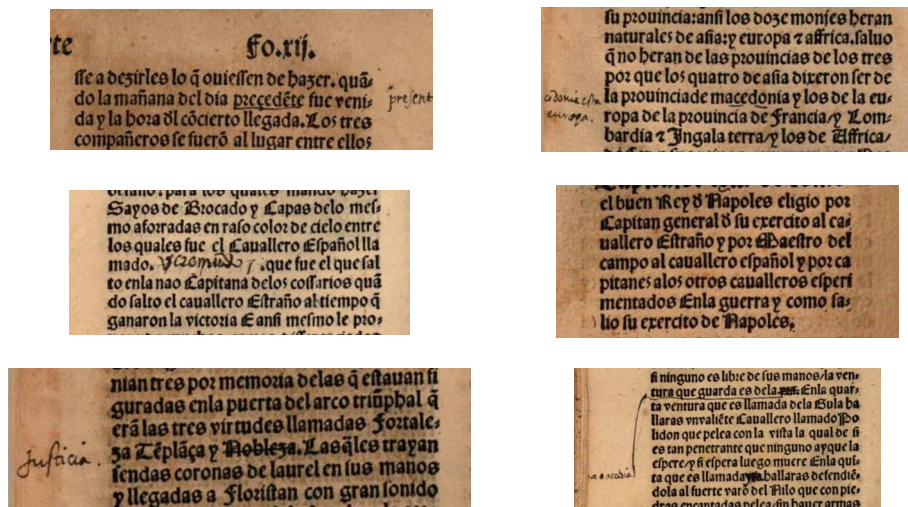 te
Fo.xij.
sse a dezirles lo q̃ ouiessen de hazer. quã-
do la mañana del dia precedẽte fue veni-
present
da y la hora dl cõcierto llegada. Los tres
compañeros se fuerõ al lugar entre ellos
su prouincia: ansi los doze monjes heran
naturales de asia: y europa ⁊ affrica. saluo
q̃ no heran de las prouincias de los tres
por que los quatro de asia dixeron ser de
la prouincia de macedonia y los de la eu-
europa.
ropa de la prouincia de Francia/y Lom-
bardia ⁊ Jngala terra/y los de Affrica/
Sayos de Brocado y Capas delo mes-
mo aforradas en raso color de cielo entre
los quales fue el Cauallero Español lla
mado. .que fue el que sal
to enla nao Capitana delos cossarios quã
do salto el cauallero Estraño al tiempo q̃
ganaron la victoria E ansi mesmo le pro-
el buen Rey d Napoles eligio por
Capitan general d su exercito al ca-
uallero Estraño y por Maestro del
campo al cauallero español y por ca
pitanes alos otros caualleros esperi
mentados Enla guerra y como sa-
lio su exercito de Napoles.
nian tres por memoria delas q̃ estauan fi
guradas enla puerta del arco triũphal q̃
erã las tres virtudes llamadas Fortale-
za Tẽplãça y Nobleza. Las q̃les trayan
Justicia.
sendas coronas de laurel en sus manos
y llegadas a Floristan con gran sonido
si ninguno es libre de sus manos/la ven-
tura que guarda es dela Enla quar-
ta ventura que es llamada dela Gula ha
llaras vn valiẽte Cauallero llamado Po
lidon que pelea con la vista la qual de si
es tan penetrante que ninguno ay que la
espere/y si espera luego muere Enla quĩ-
ta que es llamada hallaras defendiẽ-
dola al fuerte varõ del Nilo que con pie-
dras encantadas pelea/sin hauer armas